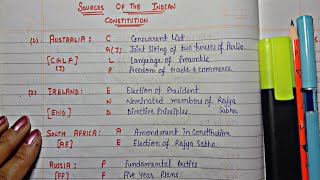 SOURCES OF THE INDIAN
CONSTITUTION
(1) AUSTRALIA: C Concurrent List
G(J) Joint Sitting of two houses of Parlia.
[CGLF] L Language of Preamble
(J) F Freedom of trade & commerce
(2) IRELAND: E Election of President
N Nominated members of Rajya
[END] D Directive Principles Sabha
SOUTH AFRICA: A Amendment in Constitution
[AE] E Election of Rajya Sabha
RUSSIA: F Fundamental Duties
[FF] F Five Year Plans